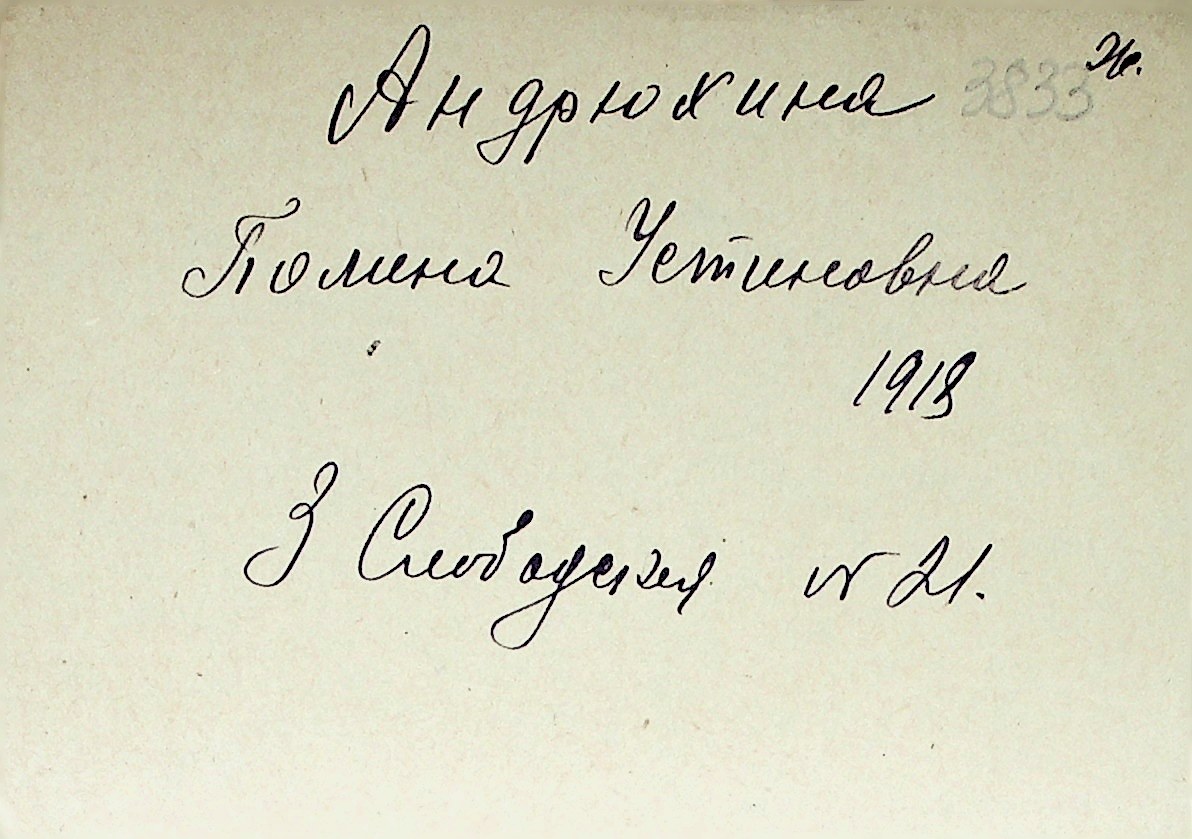 Андрюхина 3833 Ж.
Полина Устиновна
1918
3 Слободская N 21.